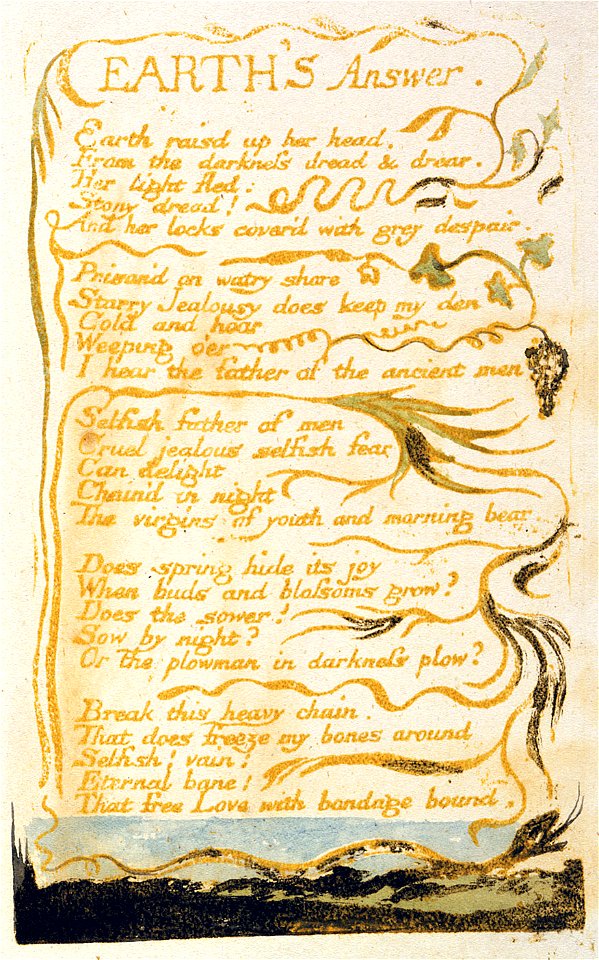 EARTH'S Answer.
Earth raisd up her head,
From the darkneſs dread & drear.
Her light fled:
Stony dread!
And her locks cover'd with grey despair.
Prison'd on watry shore
Starry Jealousy does keep my den
Cold and hoar
Weeping o'er
I hear the father of the ancient men
Selfish father of men
Cruel jealous selfish fear
Can delight
Chain'd in night
The virgins of youth and morning bear
Does spring hide its joy
When buds and bloſsoms grow?
Does the sower?
Sow by night?
Or the plowman in darkneſs plow?
Break this heavy chain.
That does freeze my bones around
Selfish! vain!
Eternal bane!
That free Love with bondage bound.